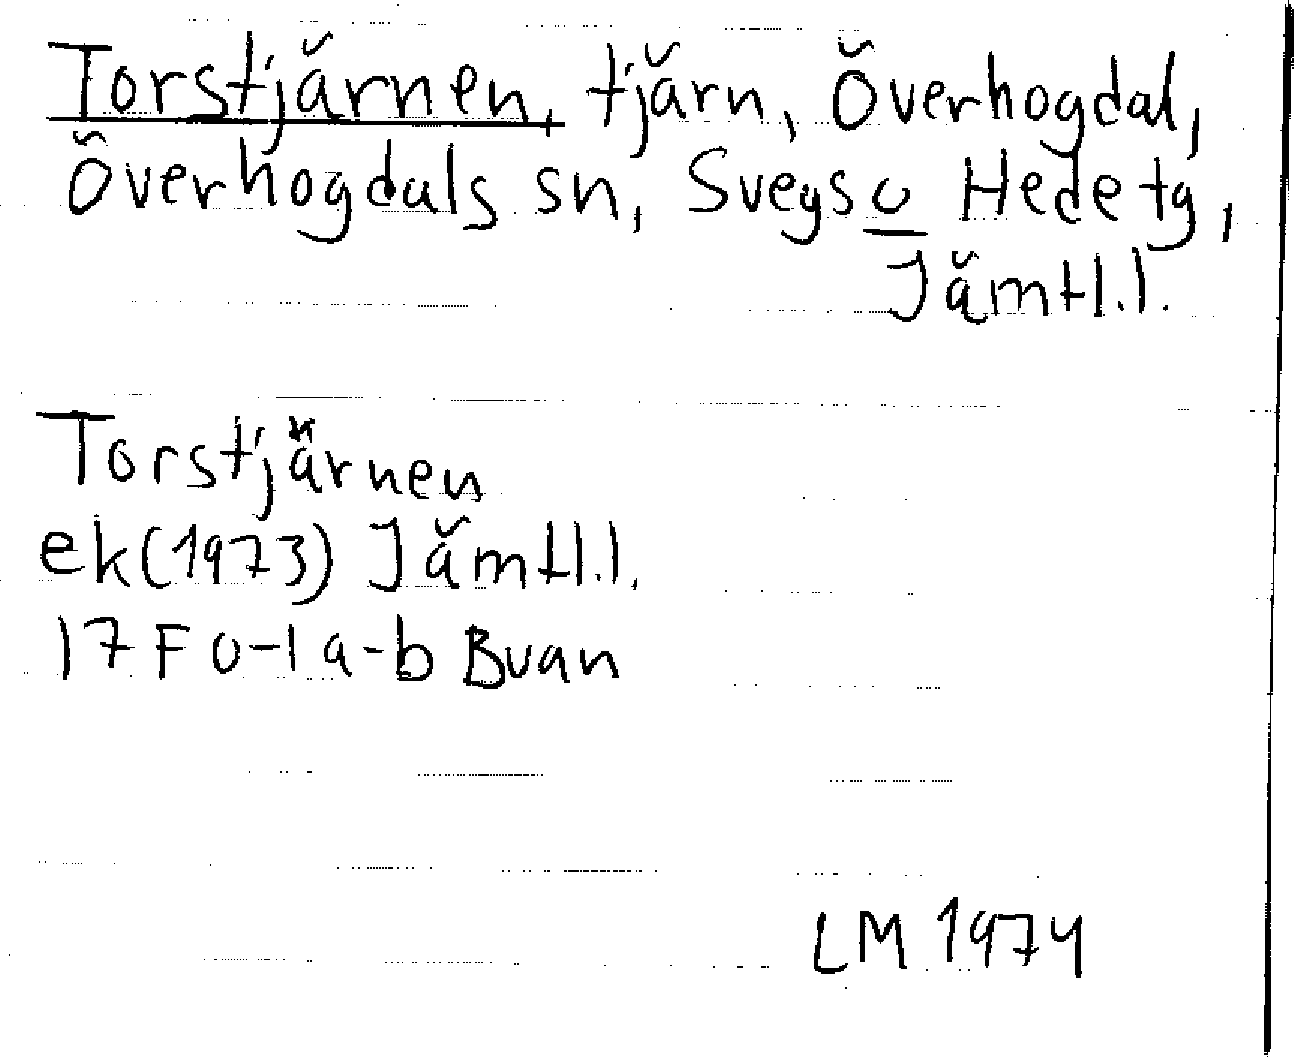 Torstjärnen, tjärn, Överhogdal,
Överhogdals sn, Svegs o Hede tg,
Jämtl.l.
Torstjärnen
ek(1973) Jämtl.l.
17 F 0-1 a-b Buan
LM 1974